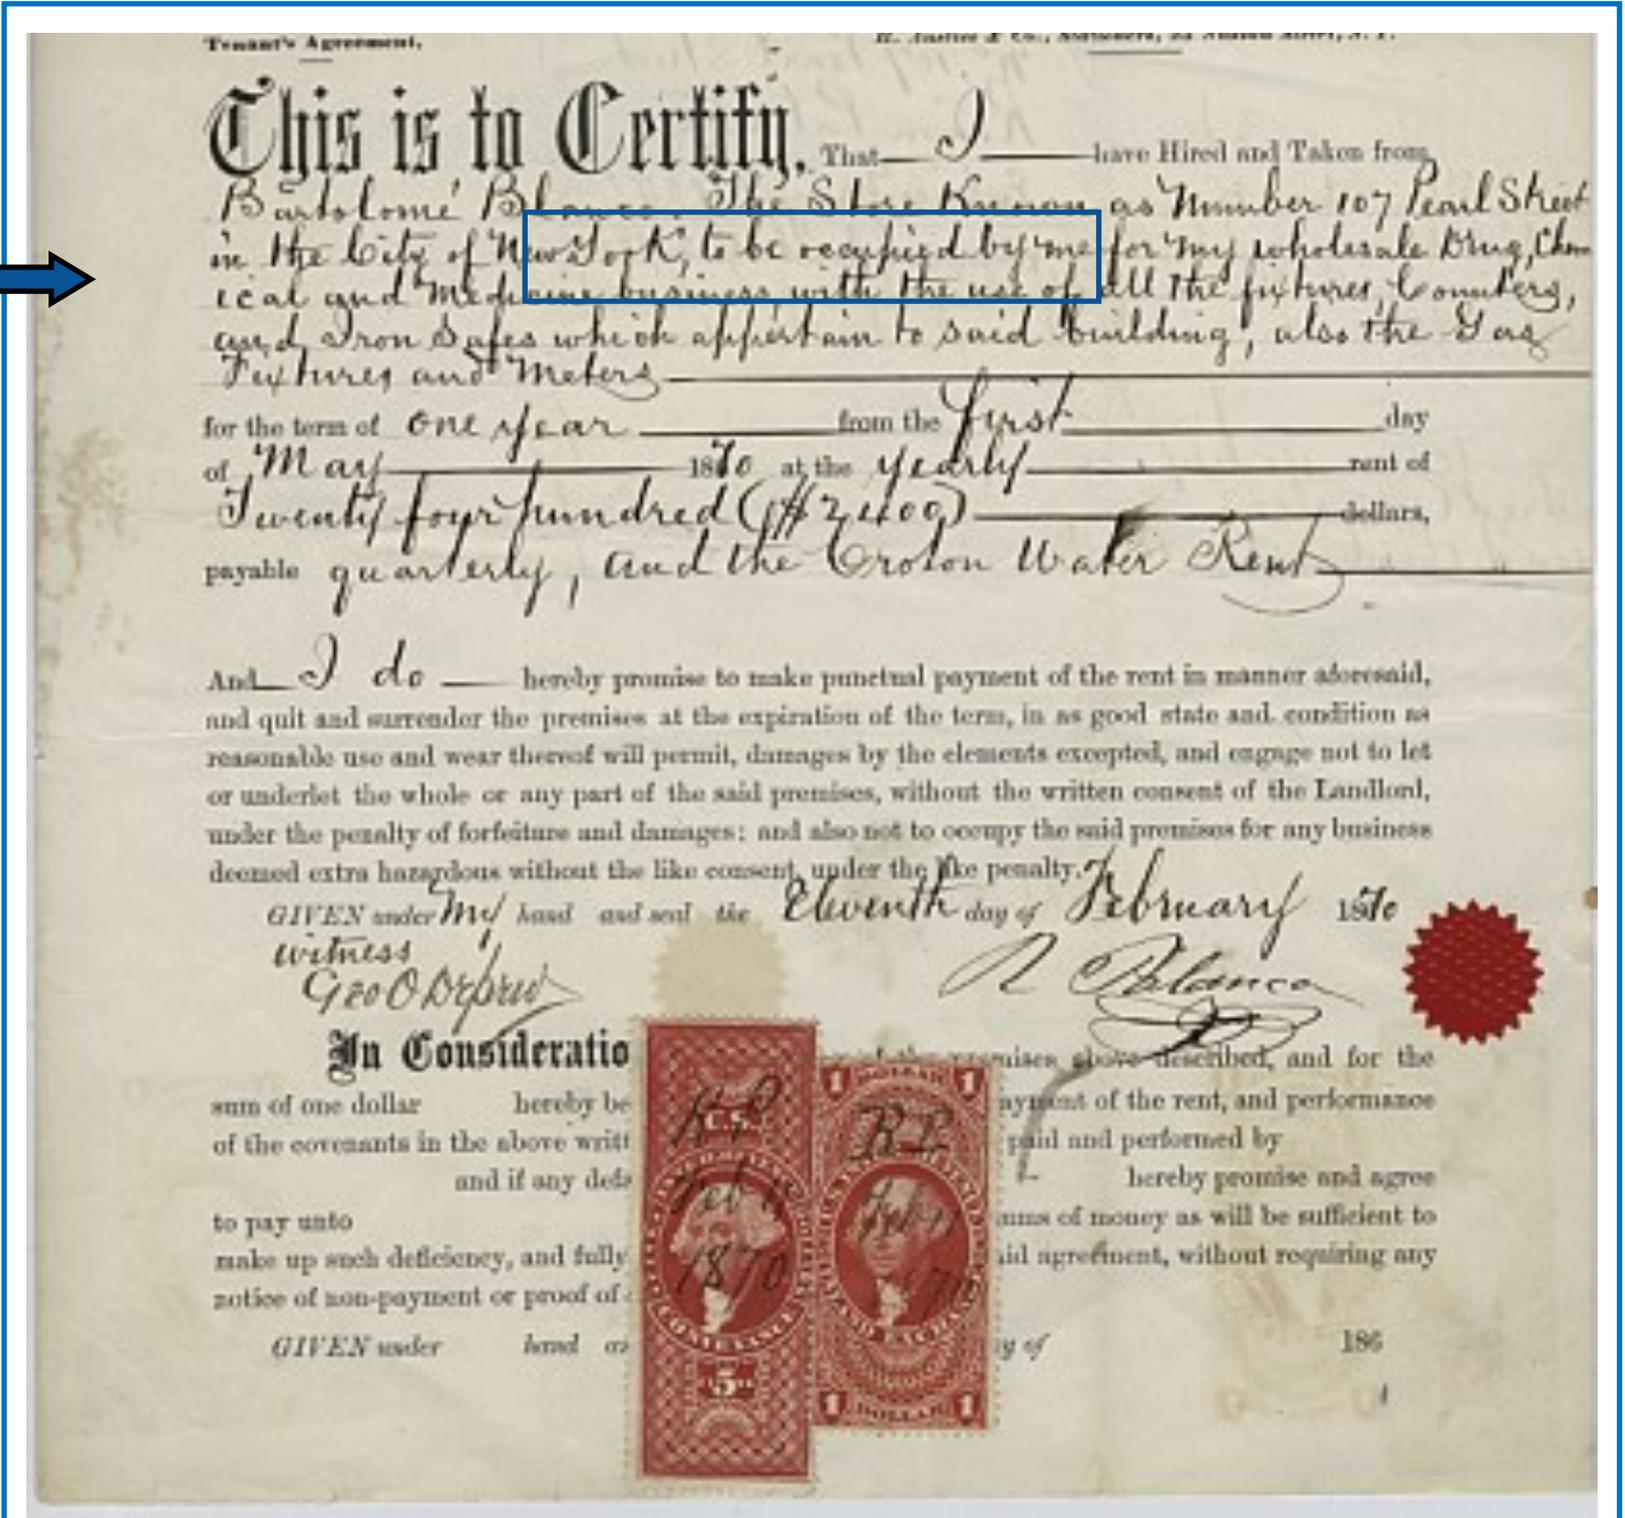 Tenant's Agreement.
This is to Certify, That I have Hired and Taken from
Bartolomé Blanco. The Store Known as Number 107 Pearl Street
in the City of New York, to be occupied by me for my wholesale Drug, Chem
ical and Medicine business, with the use of all the fixtures, Counters,
and Iron Safes which appertain to said building, also the Gas
Fixtures and Meters
for the term of one year from the first day
of May 1870 at the yearly rent of
Twenty four hundred ($2400) dollars,
payable quarterly, and the Croton Water Rent
And I do hereby promise to make punctual payment of the rent in manner aforesaid,
and quit and surrender the premises at the expiration of the term, in as good state and condition as
reasonable use and wear thereof will permit, damages by the elements excepted, and engage not to let
or underlet the whole or any part of the said premises, without the written consent of the Landlord,
under the penalty of forfeiture and damages; and also not to occupy the said premises for any business
deemed extra hazardous without the like consent, under the like penalty.
GIVEN under my hand and seal the Eleventh day of February 1870
witness
Geo O
R Blanco
In Consideratio premises above described, and for the
sum of one dollar hereby be ayment of the rent, and performance
of the covenants in the above writt paid and performed by
and if any defa hereby promise and agree
to pay unto ums of money as will be sufficient to
make up such deficiency, and fully aid agreement, without requiring any
notice of non-payment or proof of
GIVEN under hand an y of 186
U.S.
Feb 11
1870
CONVEYANCE
5
1 DOLLAR 1
Feb 11
70
AND EXCHANGE
1 DOLLAR 1